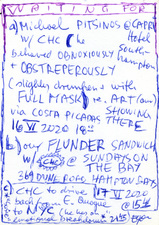 WAITING FOR
a) Michael PITSINOS @ CAPRI
w/ CHC (he Hotel
behaved OBNOXIOUSLY South-
+ OBSTREPEROUSLY hampton
(slightly drunken w/ with
FULL MASK) re. ART (our
via COSTA PICADAS SHOWING
16 VI 2020 18 THERE
b) our FLUNDER SANDWICH
w/ CHC @ SUNDAYS ON
THE BAY
369 DUNE ROAD HAMPTON BAYS
c) CHC to drive 17 VI 2020
back from E. Quogue @ 15
to NYC (he has an
emotional breakdown